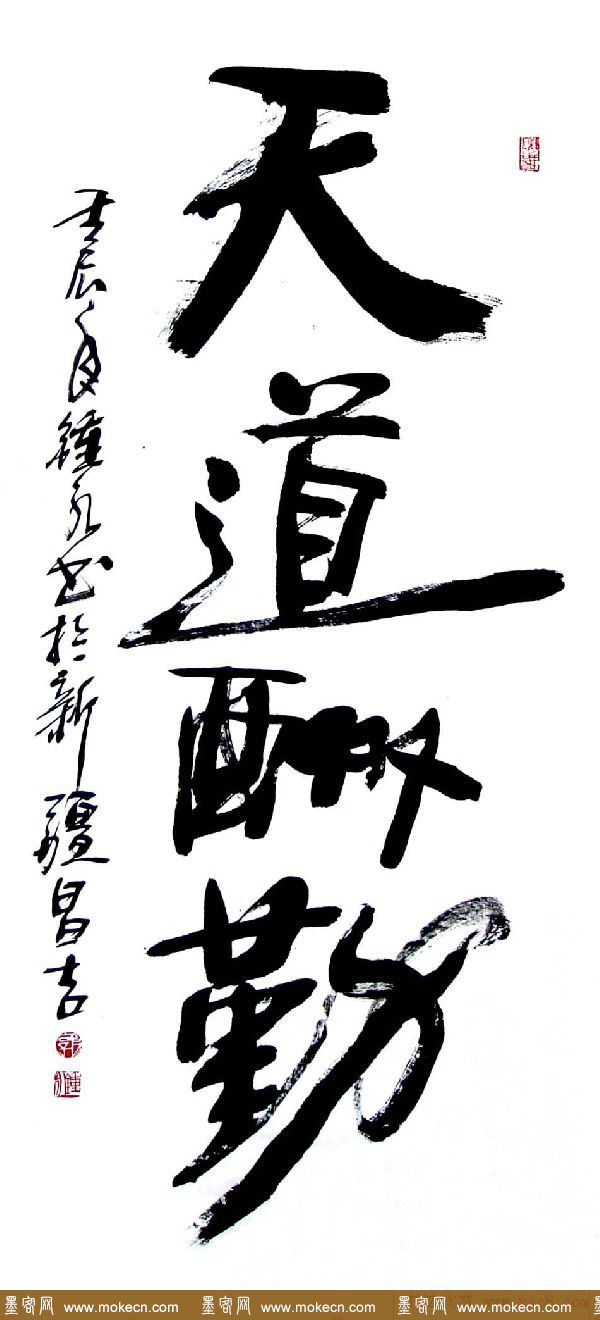 天道酬勤
壬辰年鍾永书於新疆昌吉
墨客网 www.mokecn.com 墨客网 www.mokecn.com 墨客网 www.mokecn.com